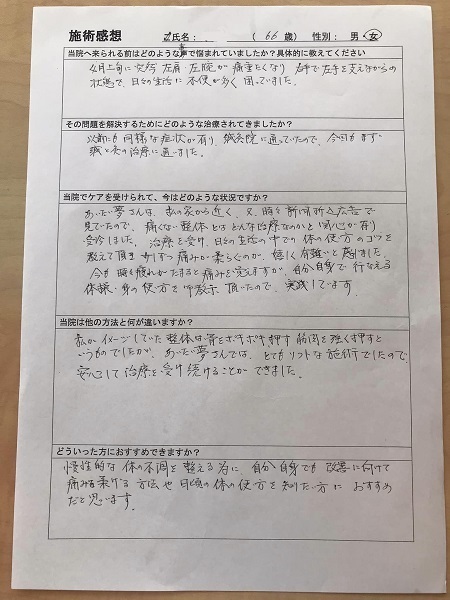 施術感想 氏名： （ 66 歳） 性別： 男 ・ 女
当院へ来られる前はどのような事で悩まれていましたか？具体的に教えてください
4月上旬に 左肩 左腕が 痛重たくなり 右手で左手を支えながらの
状態で、日々の生活に 不便が多く 困っていました。
その問題を解決するためにどのような治療されてきましたか？
以前にも 同様な症状が有り、鍼灸院に通っていたので、今回も まず
鍼と灸の治療に通いました。
当院でケアを受けられて、今はどのような状況ですか？
あいだ夢さんは、家から近く、又、時々新聞折込広告で
見ていたので、痛くない整体とはどんな治療なのかと 関心が有り
受診しました。治療を受け、日々の生活の中での体の使方のコツを
教えて頂き 少しずつ痛みが柔らぐのが、嬉しく有難いと感じました。
今も 時々疲れがたまると痛みを覚えますが、自分自身で行なえる
体操、身の使方を御教示頂いたので、実践しています。
当院は他の方法と何が違いますか？
私がイメージしていた整体は骨をボキボキ押す 筋肉を強く押すと
いうものでしたが、あいだ夢さんでは、とてもソフトな施術でしたので
安心して治療を受け続けることができました。
どういった方におすすめできますか？
慢性的な 体の不調を整える為に、自分自身でも 改善に向けて
痛みを柔げる 方法や 日頃の体の使方を 知りたい方に おすすめ
だと思います。